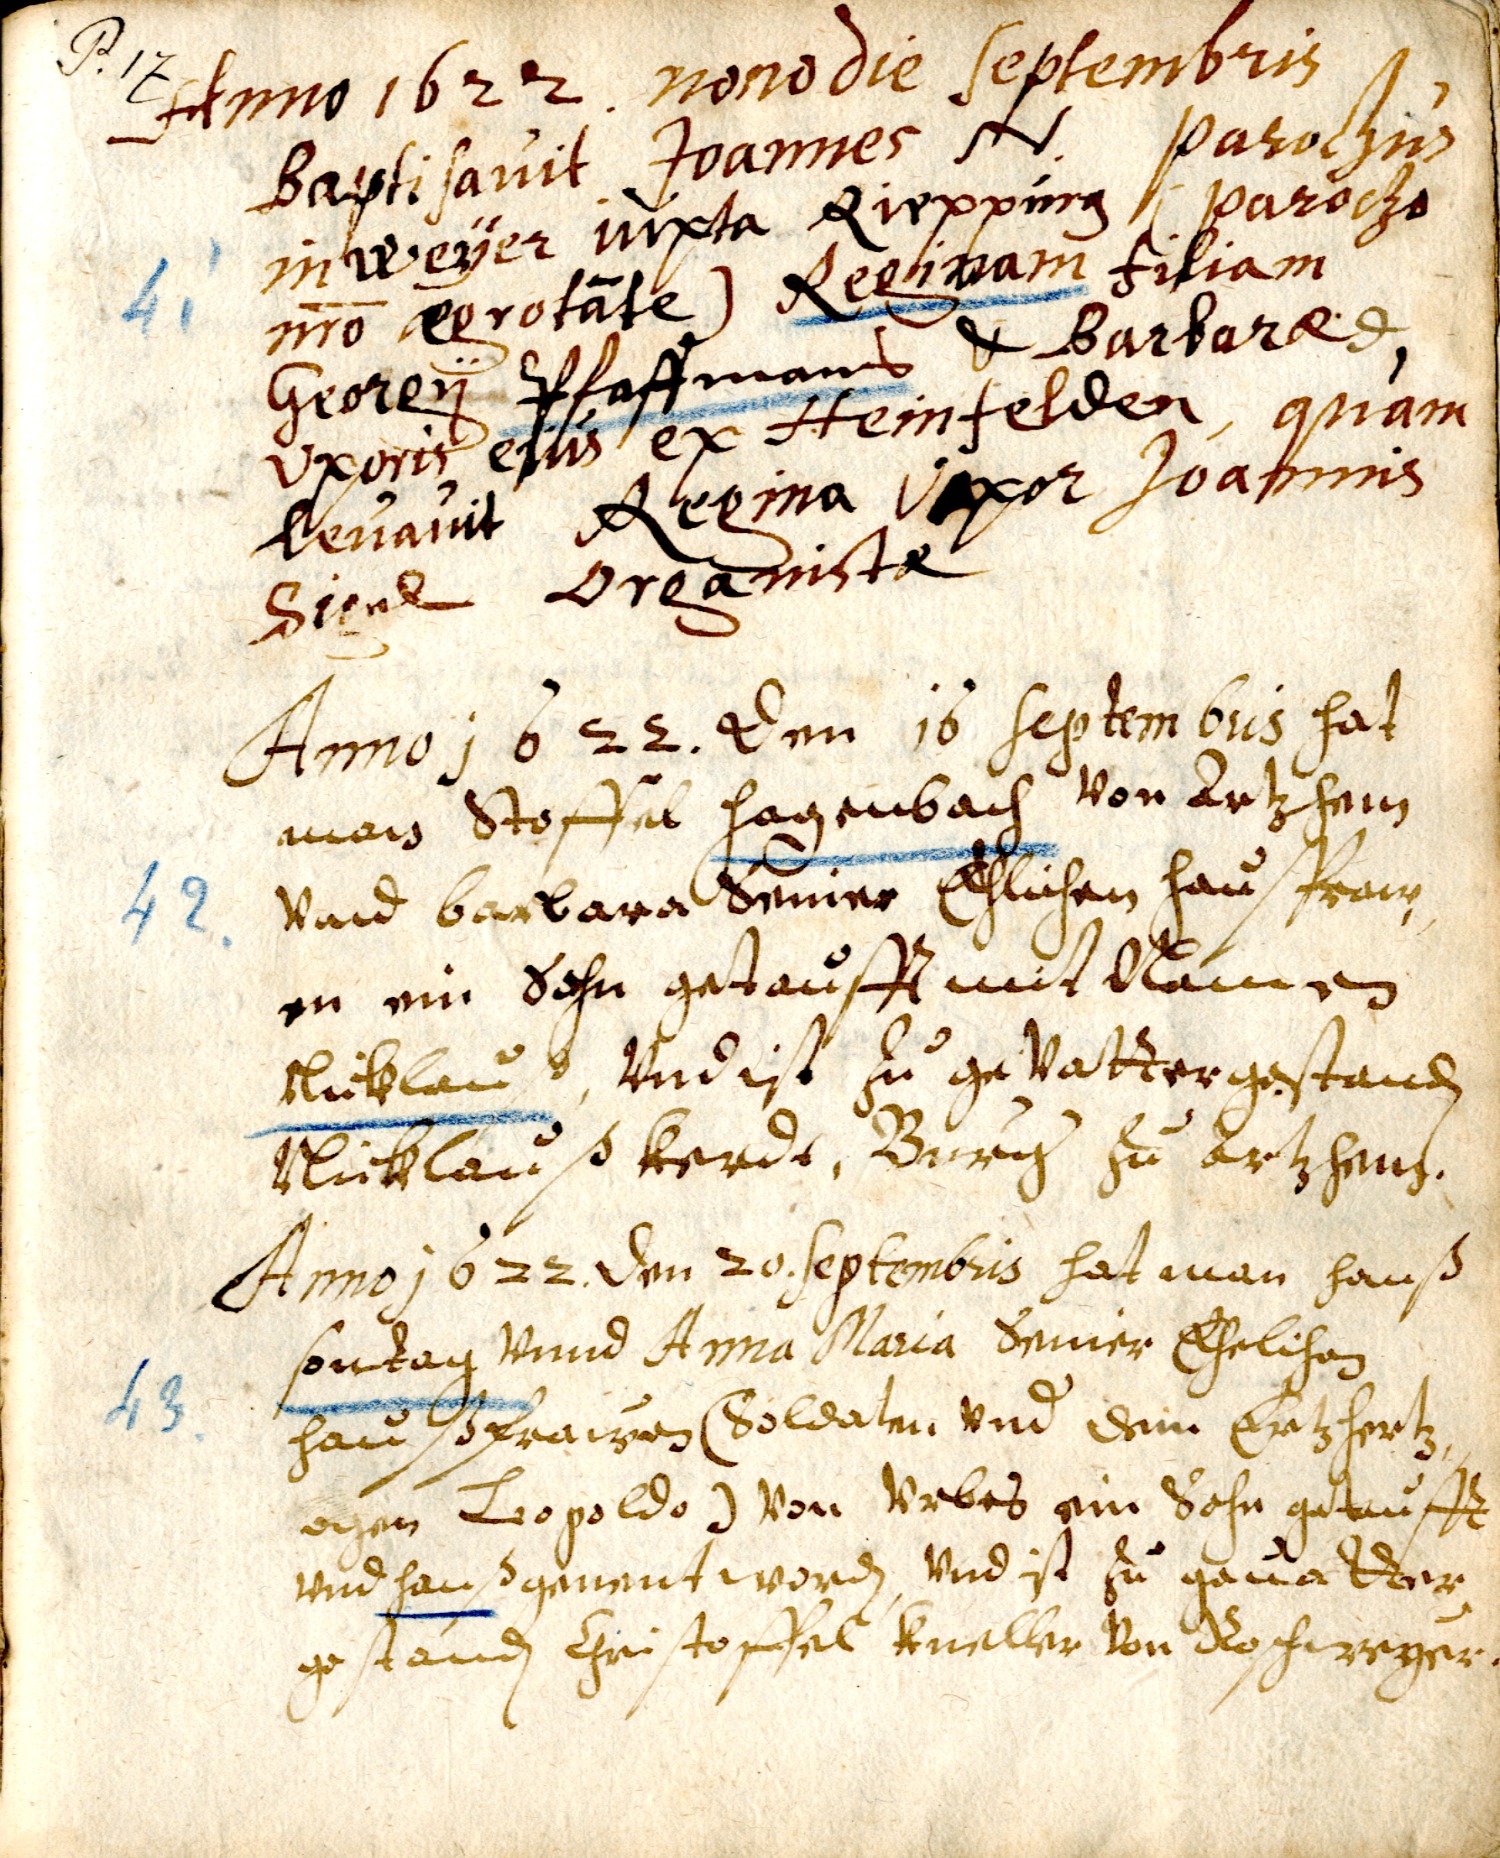 P. 17
Anno 1622. nono die Septembris
Baptisavit Joannes N. parochus
in weÿer iuxta Rieppurg (parocho
nr̄o ægrotāte) Reginam filiam
Georgij Pfaffmans & Barbaræ
Uxoris eius ex Heinfelden, quam
41
levavit Regina Uxor Joannis
Organistæ
Anno 1622. den 16 Septembris hat
man Stoffel Hagenbach von Artzhem
42.
vnd barbara Seiner Ehlichen haußfraw,
en ein Sohn getaufft mit Namen
Nicklauß, vnd ist zu gevattergestand
Nicklauß kerdt, Burg zu Artzhem.
Anno 1622. den 20. Septembris hat man hanß
sontag vnnd Anna Maria Seiner Ehelichen
43.
haußfrawen (Soldaten vnd dem Ertzhertz,
ogen Leopoldo) von ein Sohn getaufft
vnd hanß genent word, vnd ist zu gevatter
gestand Christoffel kneller von Roschweyer.